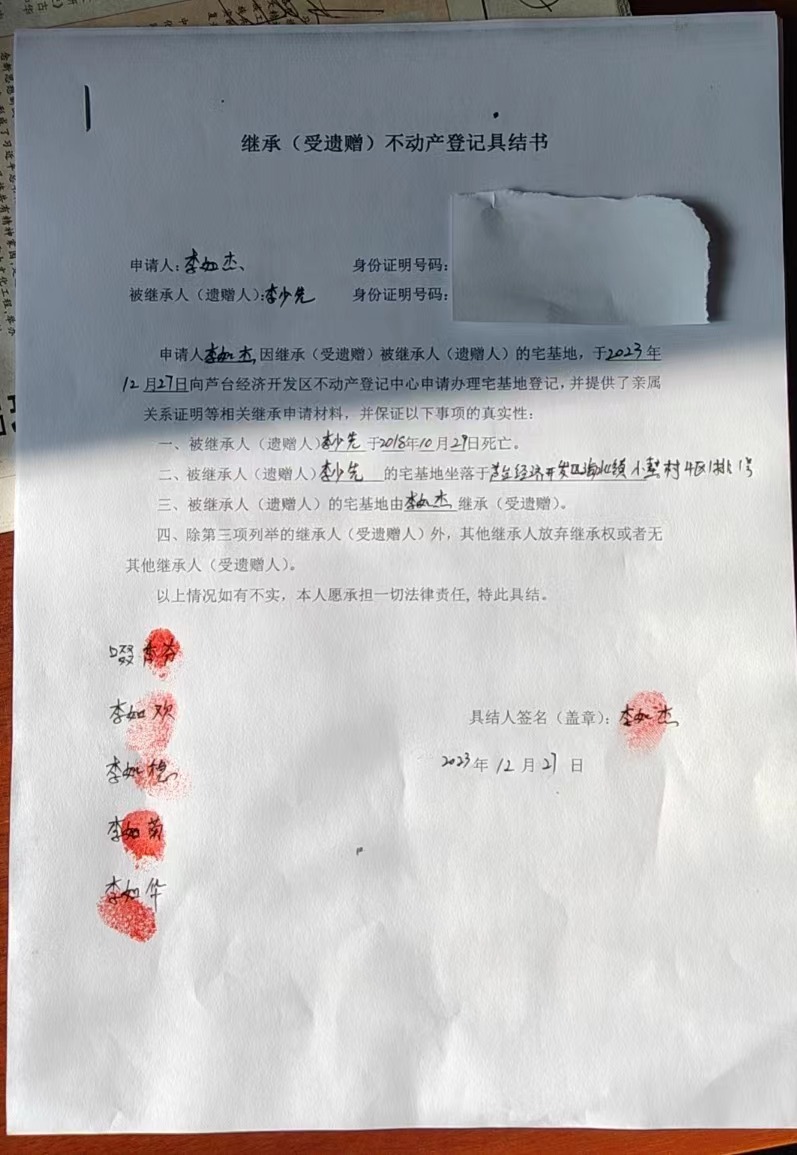 继承（受遗赠）不动产登记具结书
申请人：李如杰、 身份证明号码：
被继承人（遗赠人）：李少先 身份证明号码：
申请人李如杰因继承（受遗赠）被继承人（遗赠人）的宅基地，于2023年
12月27日向芦台经济开发区不动产登记中心申请办理宅基地登记，并提供了亲属
关系证明等相关继承申请材料，并保证以下事项的真实性：
一、被继承人（遗赠人）李少先于2018年10月29日死亡。
二、被继承人（遗赠人）李少先 的宅基地坐落于芦台经济开发区海北镇小 村4区1排1号
三、被继承人（遗赠人）的宅基地由李如杰继承（受遗赠）。
四、除第三项列举的继承人（受遗赠人）外，其他继承人放弃继承权或者无
其他继承人（受遗赠人）。
以上情况如有不实，本人愿承担一切法律责任，特此具结。
啜香芬
李如欢
李如
具结人签名（盖章）：李如杰
2023年12月27日
李如菊
李如华